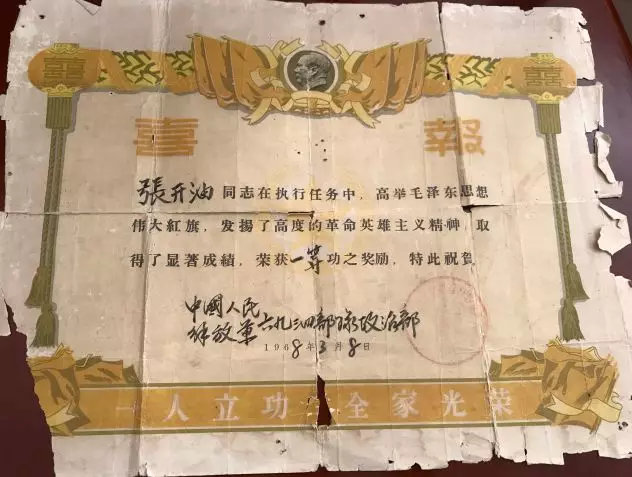 喜報
張开油同志在执行任务中，高举毛泽东思想
伟大紅旗，发揚了高度的革命英雄主义精神，取
得了显著成績，荣获一等功之奖励，特此祝賀
中國人民
解放軍六九三四部隊政治部
1968年3月8日
一人立功 全家光荣